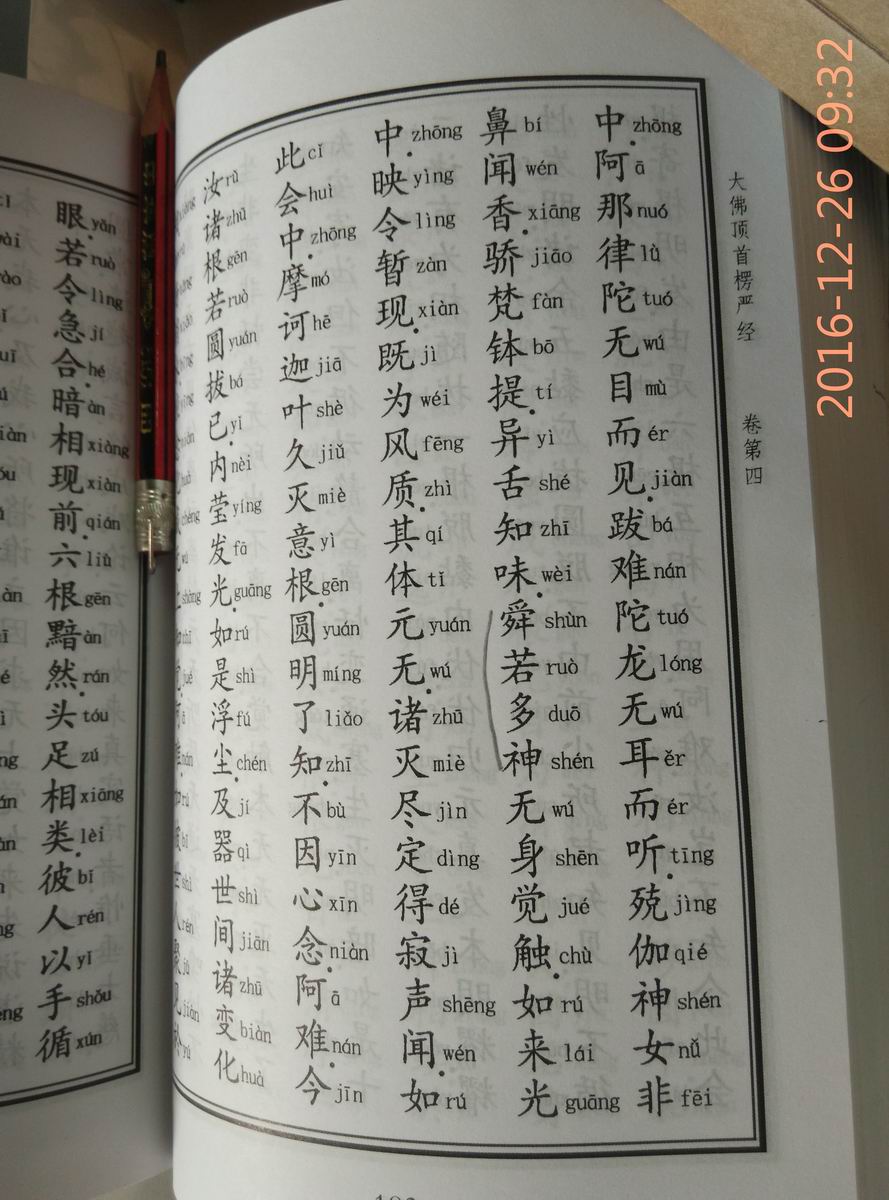 大佛顶首楞严经 卷第四
中 zhōng 阿 ā 那 nuó 律 lǜ 陀 tuó 无 wú 目 mù 而 ér 见 jiàn 跋 bá 难 nán 陀 tuó 龙 lóng 无 wú 耳 ěr 而 ér 听 tīng 殑 jìng 伽 qié 神 shén 女 nǚ 非 fēi
鼻 bí 闻 wén 香 xiāng 骄 jiāo 梵 fàn 钵 bō 提 tí 异 yì 舌 shé 知 zhī 味 wèi 舜 shùn 若 ruò 多 duō 神 shén 无 wú 身 shēn 觉 jué 触 chù 如 rú 来 lái 光 guāng
中 zhōng 映 yìng 令 lìng 暂 zàn 现 xiàn 既 jì 为 wéi 风 fēng 质 zhì 其 qí 体 tǐ 元 yuán 无 wú 诸 zhū 灭 miè 尽 jìn 定 dìng 得 dé 寂 jì 声 shēng 闻 wén 如 rú
此 cǐ 会 huì 中 zhōng 摩 mó 诃 hē 迦 jiā 叶 shè 久 jiǔ 灭 miè 意 yì 根 gēn 圆 yuán 明 míng 了 liǎo 知 zhī 不 bù 因 yīn 心 xīn 念 niàn 阿 ā 难 nán 今 jīn
汝 rǔ 诸 zhū 根 gēn 若 ruò 圆 yuán 拔 bá 已 yǐ 内 nèi 莹 yíng 发 fā 光 guāng 如 rú 是 shì 浮 fú 尘 chén 及 jí 器 qì 世 shì 间 jiān 诸 zhū 变 biàn 化 huà
眼 yǎn 若 ruò 令 lìng 急 jí 合 hé 暗 àn 相 xiàng 现 xiàn 前 qián 六 liù 根 gēn 黯 àn 然 rán 头 tóu 足 zú 相 xiāng 类 lèi 彼 bǐ 人 rén 以 yǐ 手 shǒu 循 xún
2016-12-26 09:32